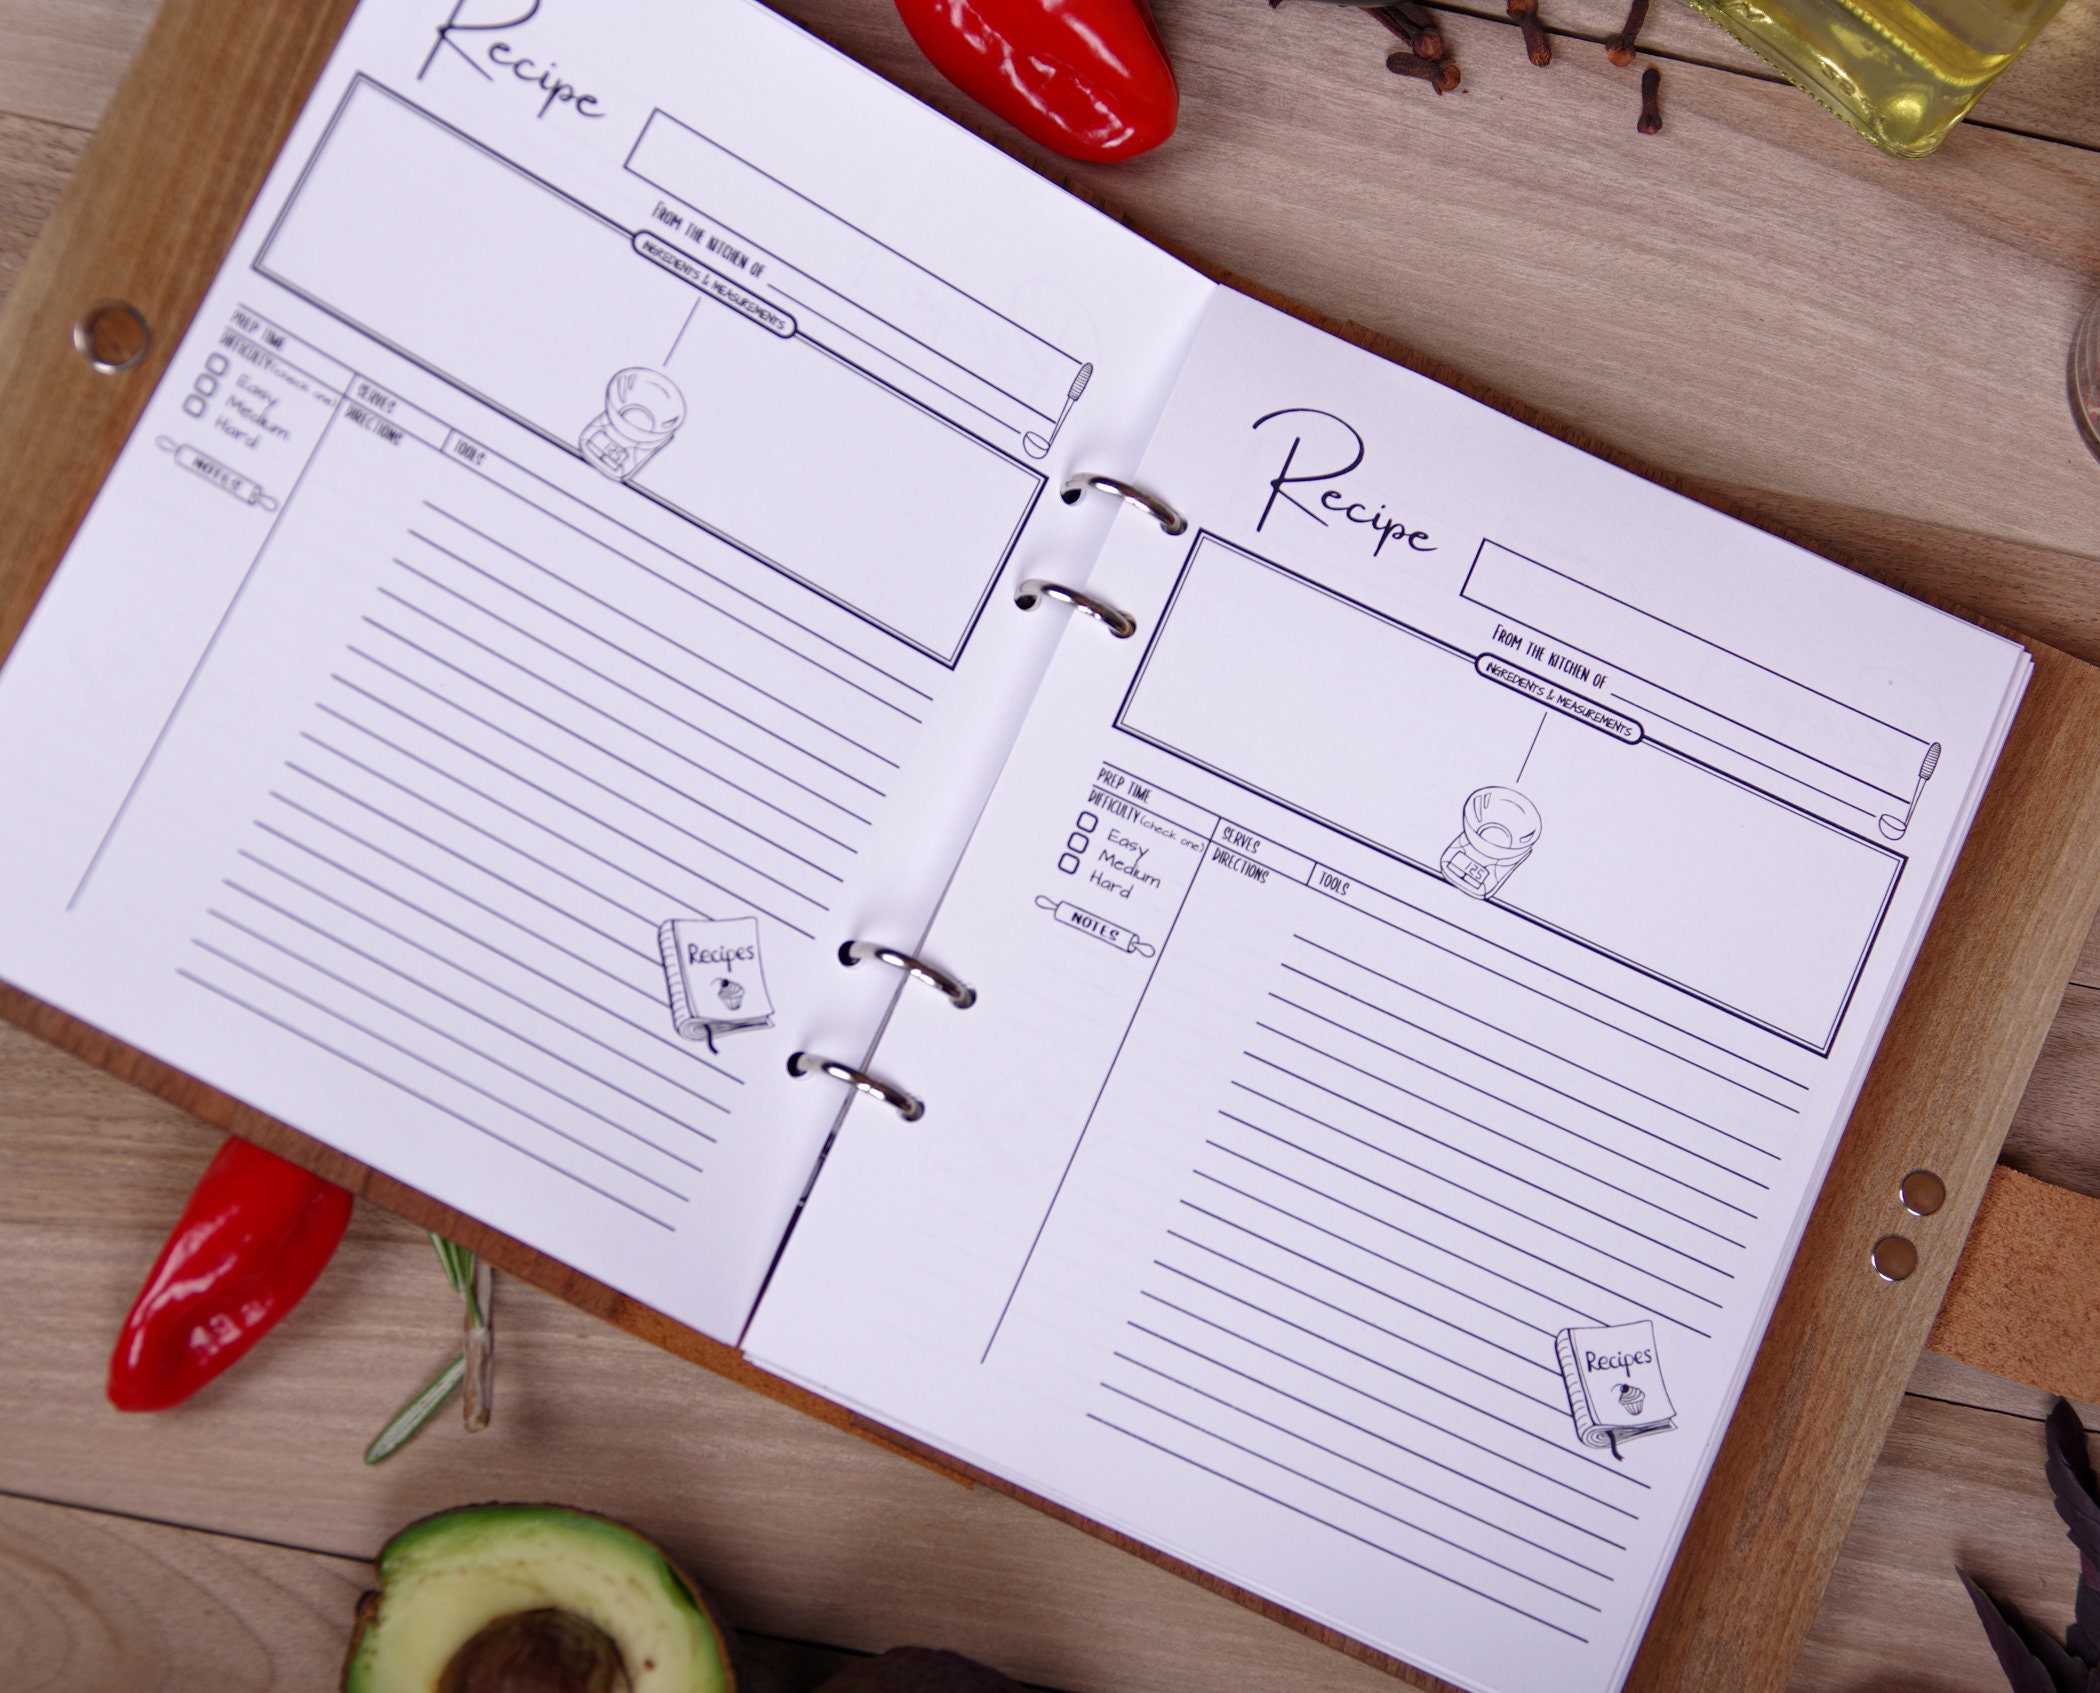 Recipe
FROM THE KITCHEN OF
INGREDIENTS & MEASUREMENTS
PREP TIME
SERVES
TOOLS
DIFFICULTY (check one)
Easy
Medium
Hard
DIRECTIONS
NOTES
Recipes
Recipe
FROM THE KITCHEN OF
INGREDIENTS & MEASUREMENTS
125
PREP TIME
SERVES
TOOLS
DIFFICULTY (check one)
Easy
Medium
Hard
DIRECTIONS
NOTES
Recipes